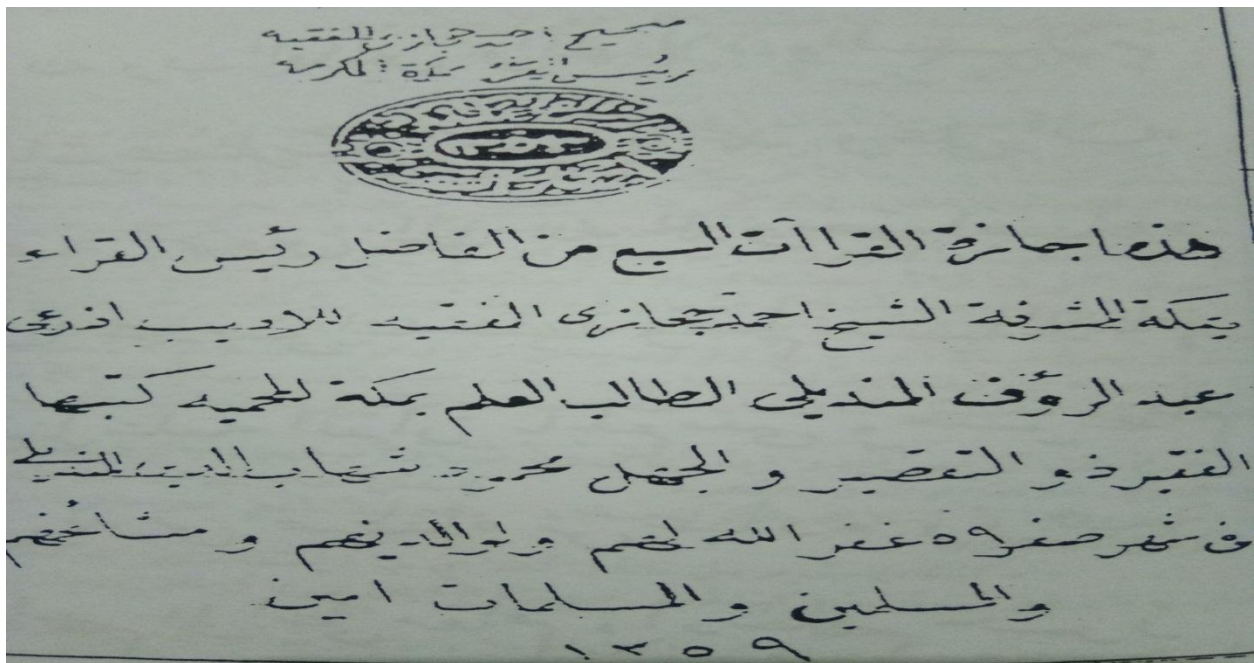 صحيح احمد حجازي الفقيه
رئيس القراء بمكة المكرمة
هذه اجازة القراآت السبع من الفاضل رئيس القراء
بمكة المشرفة الشيخ احمد حجازى الفقيه للاديب
عبد الرؤف المنديلى الطالب العلم بمكة المحميه كتبها
الفقير ذو التقصير و الجهل محمد المنديلي
فى شهر صفر ٥٩ غفر الله لهم ولوالديهم و مشائخهم
والمسلمين والمسلمات امين
١٣٥٩